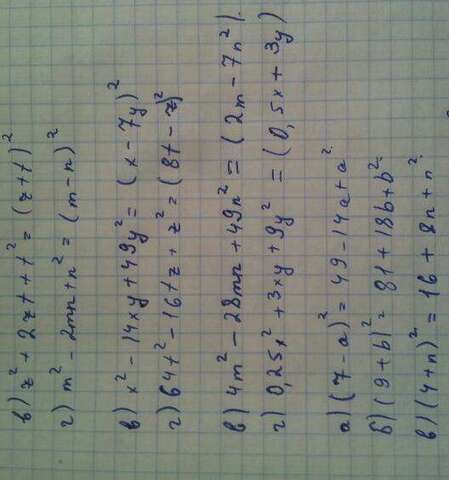 в) z² + 2zt + t² = (z+t)²
г) m² - 2mn + n² = (m-n)²
в) x² - 14xy + 49y² = (x - 7y)²
г) 64t² - 16tz + z² = (8t - z)²
в) 4m² - 28mn + 49n² = (2m - 7n²).
г) 0,25x² + 3xy + 9y² = (0,5x + 3y)
а) (7 - a)² = 49 - 14a + a²
б) (9 + b)² = 81 + 18b + b²
в) (4 + n)² = 16 + 8n + n²